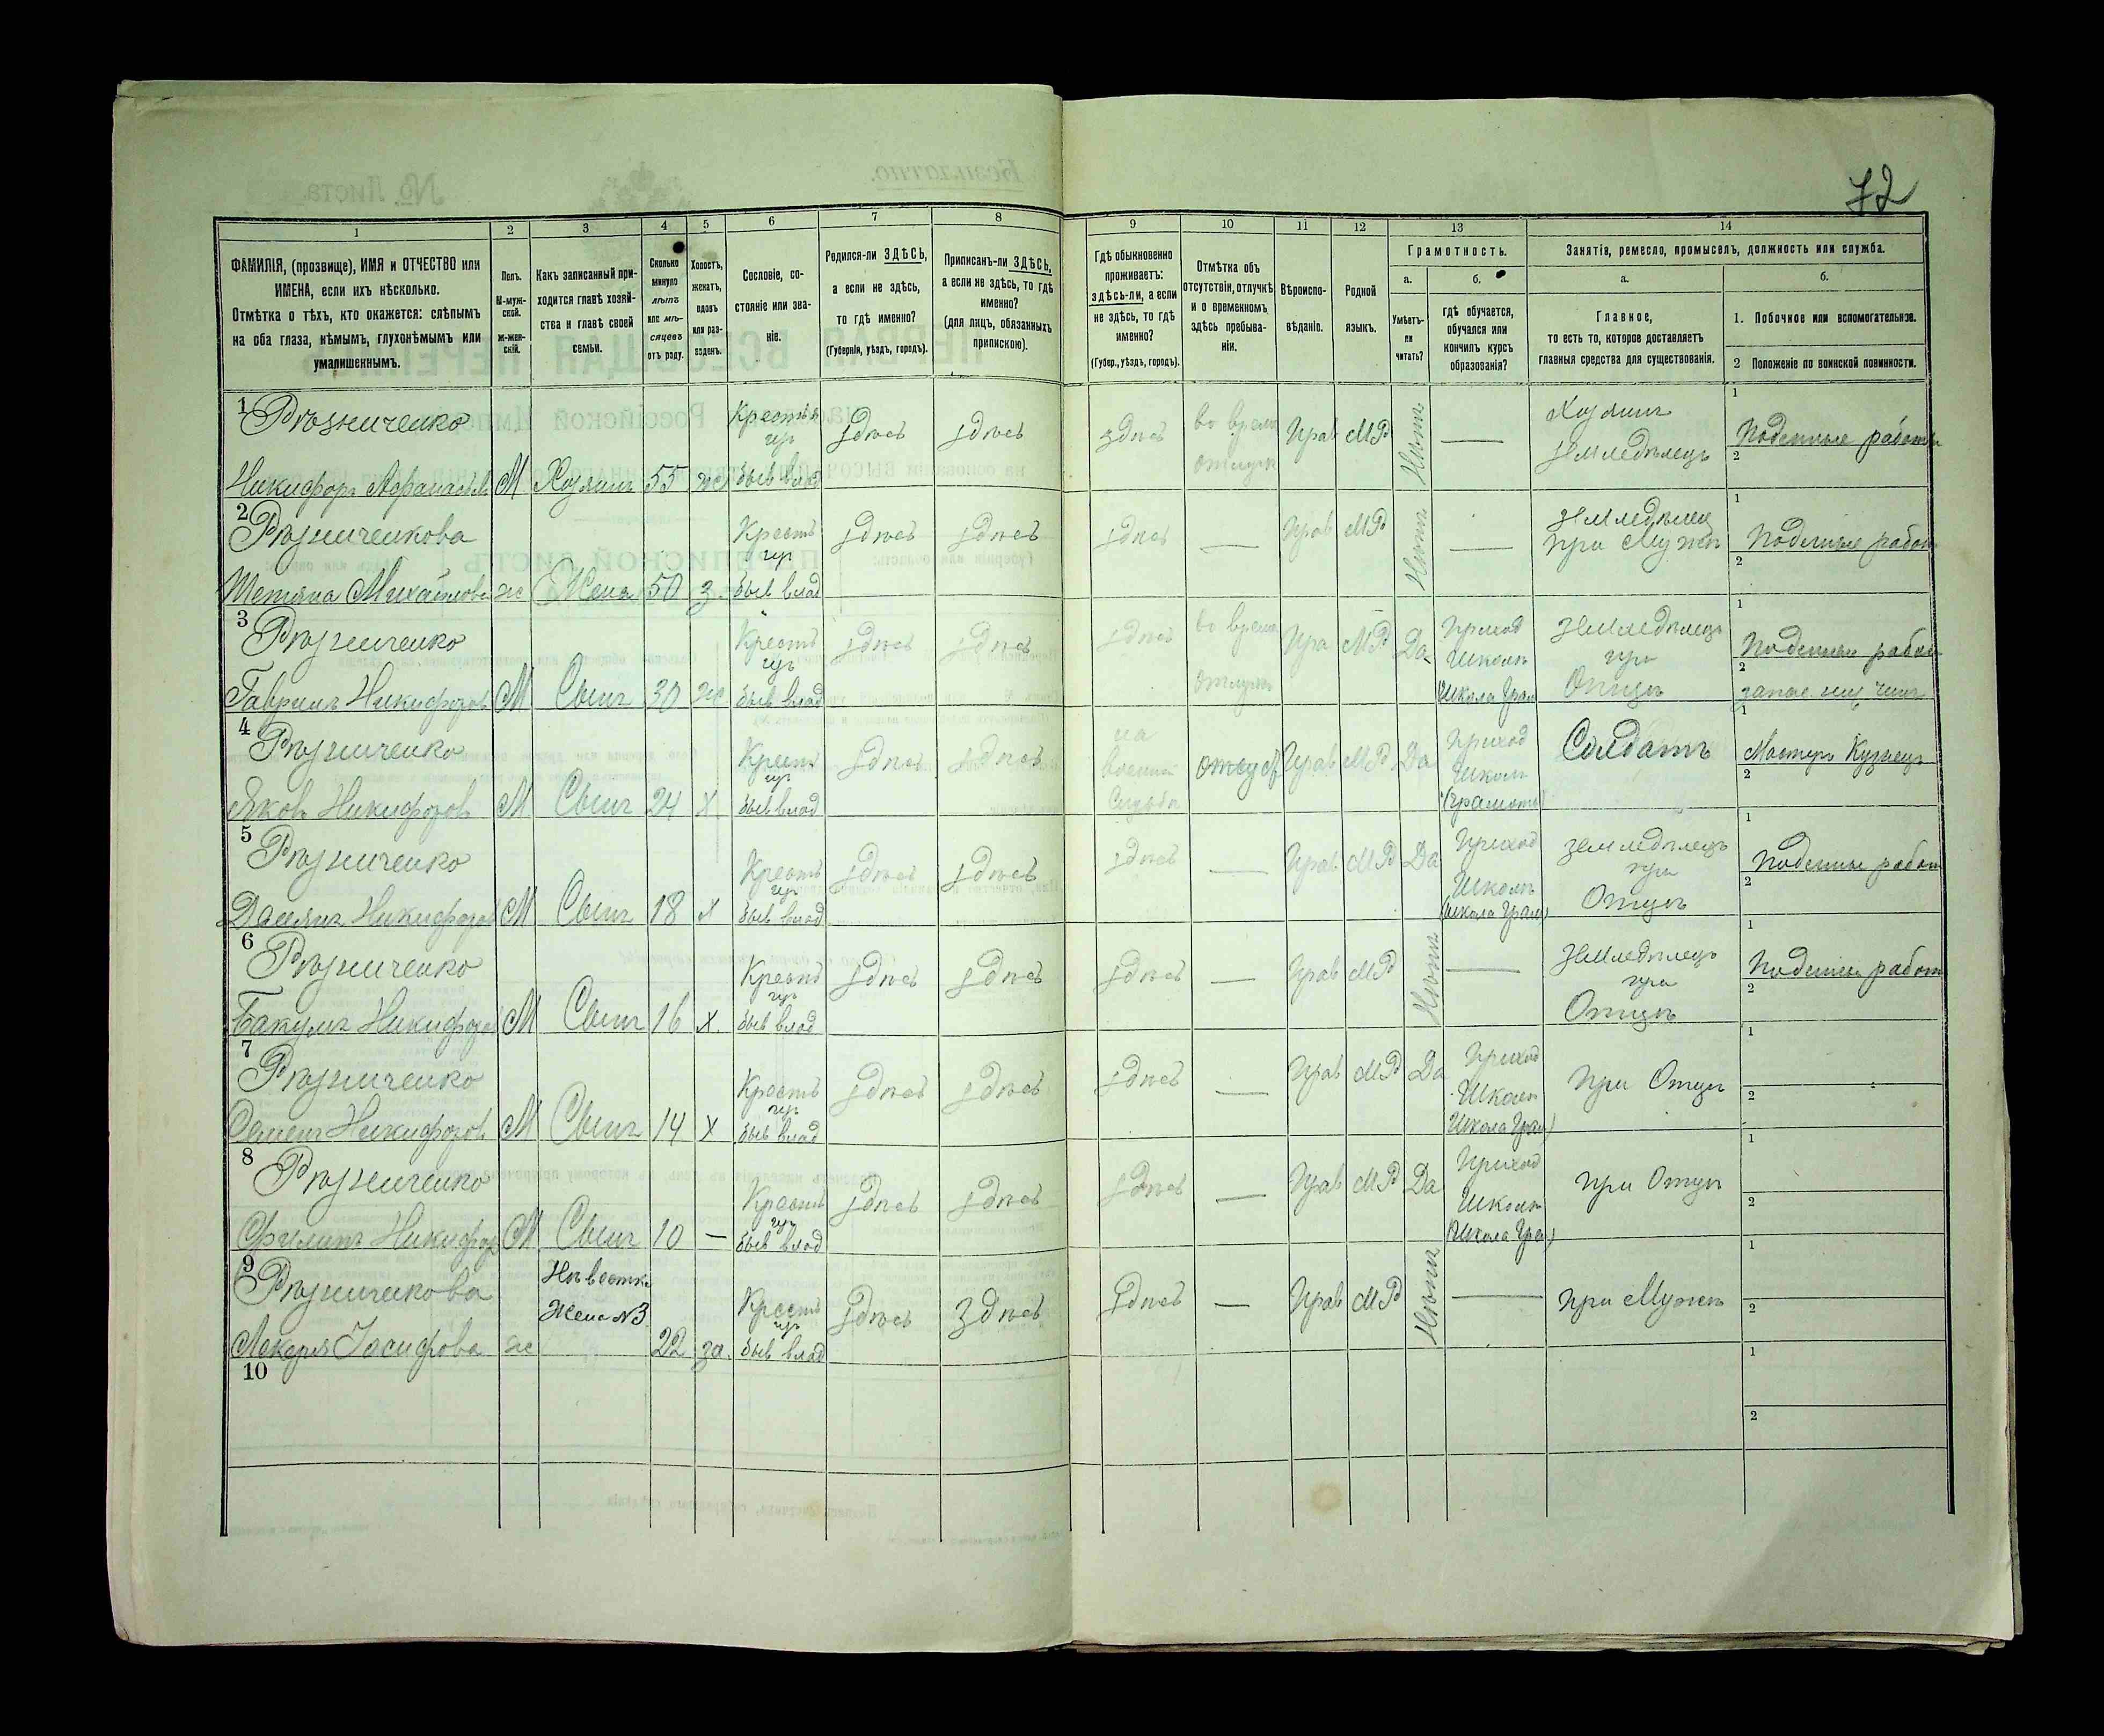 72
1 2 3 4 5 6 7 8 9 10 11 12 13 14
ФАМИЛІЯ, (прозвище), ИМЯ и ОТЧЕСТВО или
ИМЕНА, если ихъ нѣсколько.
Отмѣтка о тѣхъ, кто окажется: слѣпымъ
на оба глаза, нѣмымъ, глухонѣмымъ или
умалишеннымъ.
Полъ.
М-муж-
ской.
Ж-жен-
скій.
Какъ записанный при-
ходится главѣ хозяй-
ства и главѣ своей
семьи.
Сколько
минуло
лѣтъ
или мѣ-
сяцевъ
отъ роду.
Холостъ,
женатъ,
вдовъ
или раз-
веденъ.
Сословіе, со-
стояніе или зва-
ніе.
Родился-ли ЗДѢСЬ,
а если не здѣсь,
то гдѣ именно?
(Губернія, уѣздъ, городъ).
Приписанъ-ли ЗДѢСЬ,
а если не здѣсь, то гдѣ
именно?
(для лицъ, обязанныхъ
припискою).
Гдѣ обыкновенно
проживаетъ:
здѣсь-ли, а если
не здѣсь, то гдѣ
именно?
(Губер., уѣздъ, городъ).
Отмѣтка объ
отсутствіи, отлучкѣ
и о временномъ
здѣсь пребыва-
ніи.
Вѣроиспо-
вѣданіе.
Родной
языкъ.
Грамотность.
а.
Умѣетъ-
ли
читать?
б.
гдѣ обучается,
обучался или
кончилъ курсъ
образованія?
Занятія, ремесло, промыселъ, должность или служба.
а.
Главное,
то есть то, которое доставляетъ
главныя средства для существованія.
б.
1. Побочное или вспомогательное.
2 Положеніе по воинской повинности.
1
Рѣзниченко
Никифоръ
М Хозяинъ 55 ж
Крестьян
быв влад
здѣсь здѣсь здѣсь
во врем
отлучк
Прав МР Нѣтъ —
Хозяинъ
Земледѣлецъ
1
Поденные работы
2
2
Рѣзниченкова
Тетяна Михайлова ж Жена 50 з.
Крестъ
быв влад
здѣсь здѣсь здѣсь — Прав МР Нѣтъ —
земледѣлец
при Мужѣ
1
Поденные работ
2
3
Рѣзниченко
Гаврилъ Никифоров М Сынъ 30 ж
Крестъ
быв влад
здѣсь здѣсь здѣсь
во врем
отлучк
Пра МР Да
Приход
Школѣ
Школа Грам
земледѣлецъ
при
Отцѣ
1
Поденные работ
2
запас. ниж чинъ
4
Рѣзниченко
Яковъ Никифоров М Сынъ 24 х
Крестъ
быв влад
здѣсь здѣсь
на
военной
Службѣ
отсут Прав МР Да
Приход
Школѣ
(грамоты)
Солдатъ
1
Мастеръ Кузнецъ
2
5
Рѣзниченко
Даміянъ Никифоров М Сынъ 18 х
Крестъ
быв влад
здѣсь здѣсь здѣсь — Прав МР Да
Приход
Школѣ
(школа Грам)
земледѣлецъ
при
Отцѣ
1
Поденные работ
2
6
Рѣзниченко
Никифоров М Сынъ 16 х.
Крестъ
быв влад
здѣсь здѣсь здѣсь — Прав МР Нѣтъ —
земледѣлецъ
при
Отцѣ
1
Поденные работ
2
7
Рѣзниченко
Семенъ Никифоров М Сынъ 14 х
Крестъ
быв влад
здѣсь здѣсь здѣсь — Прав МР Да
Приход
Школѣ
Школа Грам)
при Отцѣ
1
2
8
Рѣзниченко
Филипъ Никифор М Сынъ 10 —
Крестъ
быв влад
здѣсь здѣсь здѣсь — Прав МР Да
Приход
Школѣ
(Школа Гра)
при Отцѣ
1
2
9
Рѣзниченкова
Іосифова ж
Невѣстка
Жена №3
22 за.
Крестъ
быв влад
здѣсь здѣсь здѣсь — Прав МР Нѣтъ — при Мужѣ
1
2
10
1
2